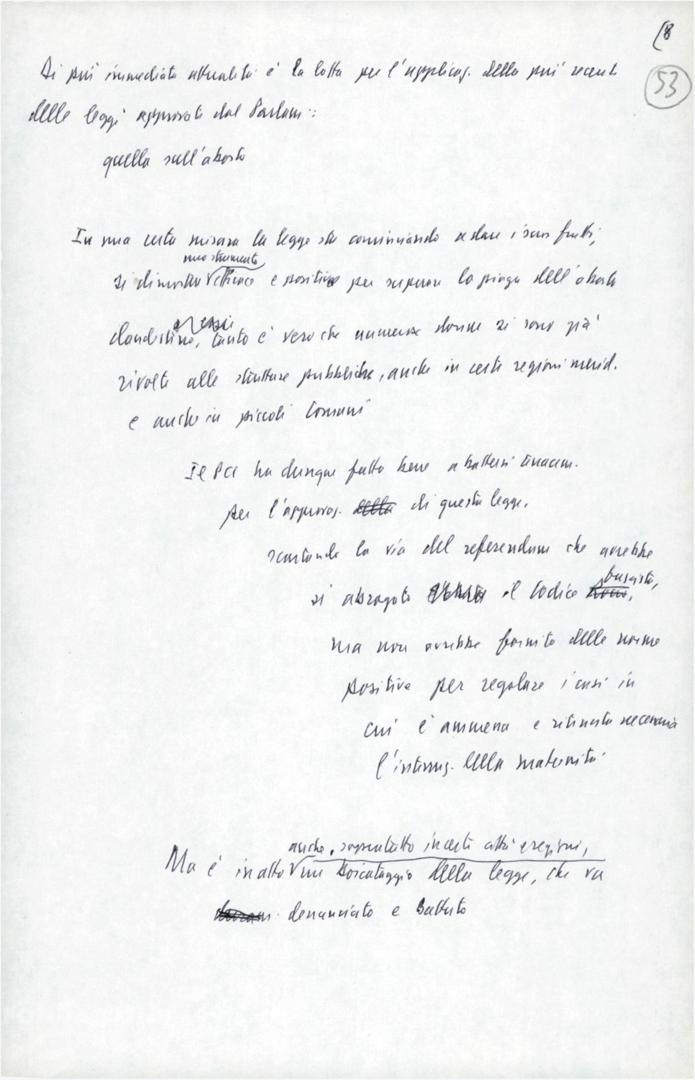 (8
53
Di più immediata attualità è la lotta per l'applicaz. della più recente
delle leggi approvate dal Parlam:
quella sull'aborto
In una certa misura la legge sta cominciando a dare i suoi frutti,
uno strumento
si dimostra efficace e positivo per superare la piaga dell'aborto
clandestino, tanto è vero che numerose donne si sono già
rivolte alle strutture pubbliche, anche in certe regioni merid.
e anche in piccoli Comuni
Il PCI ha dunque fatto bene a battersi tenacem.
per l'approvaz. della di questa legge,
scartando la via del referendum che avrebbe
si abrogato il Codice fascista,
ma non avrebbe fornito delle norme
positive per regolare i casi in
cui è ammessa e ritenuta necessaria
l'interruz. della maternità
anche, soprattutto in certe città e regioni,
Ma è in atto un boicottaggio della legge, che va
denunciato e battuto